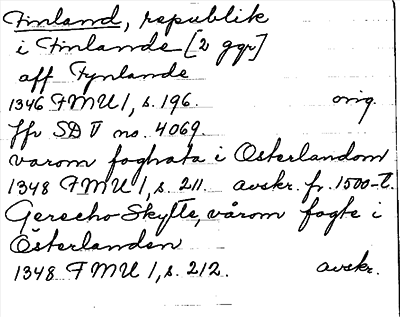 Finland, republik
i Finlande [2 ggr]
aff Fynlande
1346 FMU 1, s. 196. orig.
Jfr SD V no. 4069.
varom foghata i Osterlandom
1348 FMU 1, s. 211. avskr. fr. 1500-t.
Gerecho Skytte, vårom fogte i
Österlanden
1348 FMU 1, s. 212. avskr.